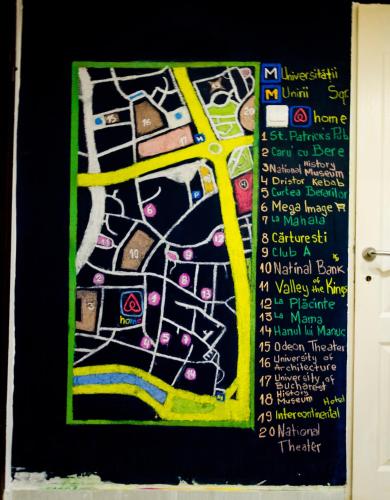 M Universității
M Unirii Sqr.
home
1 St. Patrick's Pub
2 Caru' cu Bere
3 National History
Museum
4 Dristor Kebab
5 Curtea Berarilor
6 Mega Image
7 La Mahala
8 Cărturesti
9 Club A
10 Natinal Bank
11 Valley of the Kings
12 La Plăcinte
13 La Mama
14 Hanul lui Manuc
15 Odeon Theater
16 University of
Architecture
17 University of
Bucharest
18 History
Museum
19 Intercontinental Hotel
20 National
Theater
15
16
20
17
M
18
P
19
6
10
12
9
2
11
8
13
3
home
1
4
5
7
14
M